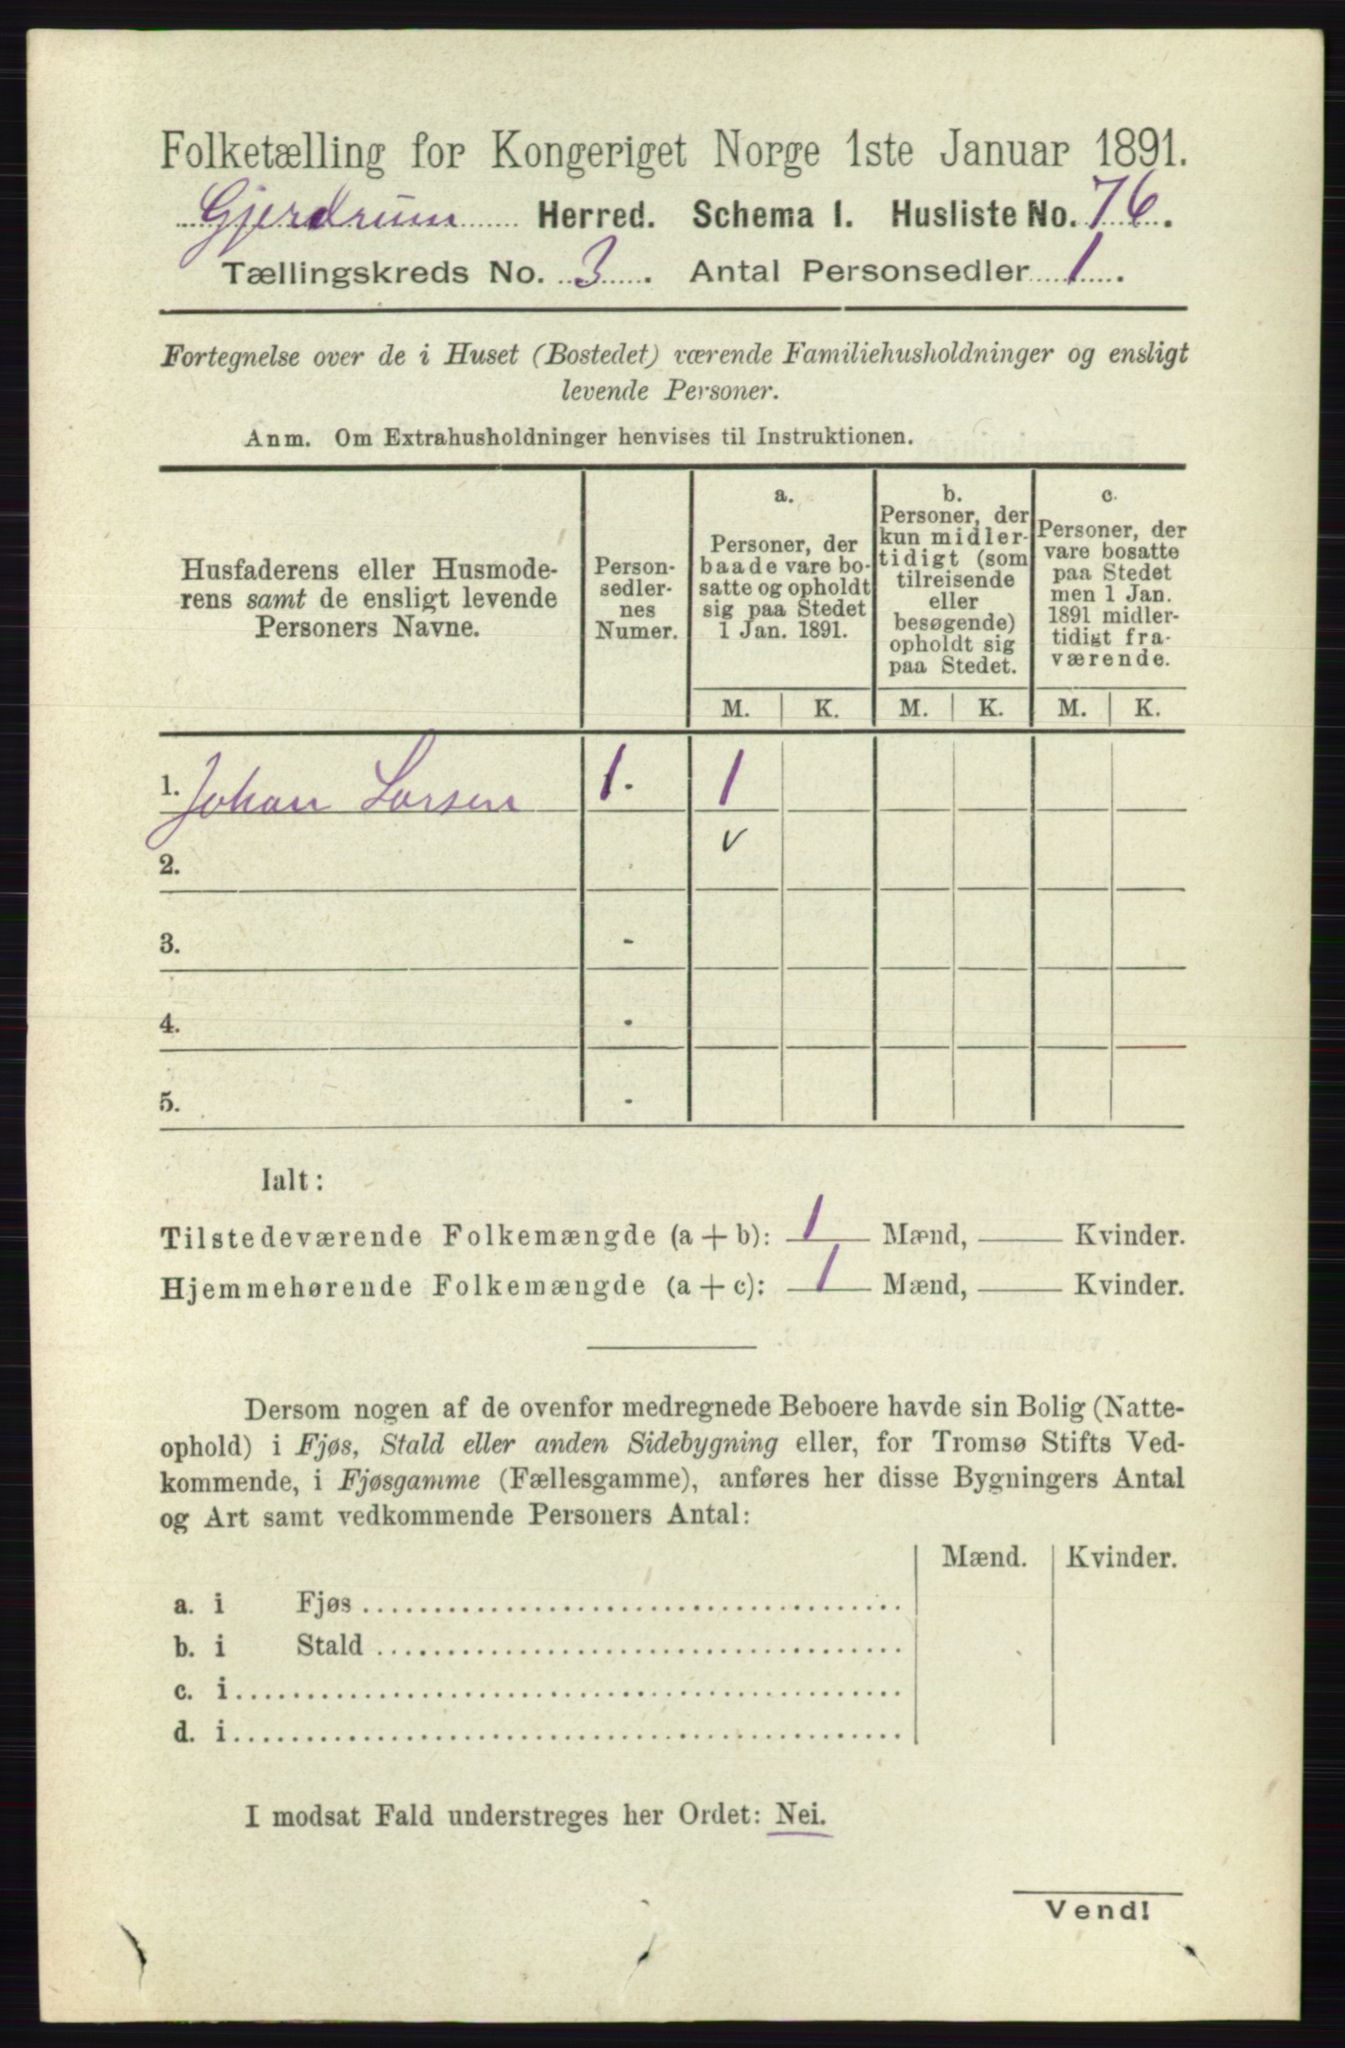 Folketælling for Kongeriget Norge 1ste Januar 1891.
Gjerdrum Herred. Schema I. Husliste No. 76.
Tællingskreds No. 3. Antal Personsedler 1.
Fortegnelse over de i Huset (Bostedet) værende Familiehusholdninger og ensligt
levende Personer.
Anm. Om Extrahusholdninger henvises til Instruktionen.
Husfaderens eller Husmode-
rens samt de ensligt levende
Personers Navne.
Person-
sedler-
nes
Numer.
a.
Personer, der
baade vare bo-
satte og opholdt
sig paa Stedet
1 Jan. 1891.
b.
Personer, der
kun midler-
tidigt (som
tilreisende
eller
besøgende)
opholdt sig
paa Stedet.
c.
Personer, der
vare bosatte
paa Stedet
men 1 Jan.
1891 midler-
tidigt fra-
værende.
M. K. M. K. M. K.
1. Johan Larsen 1. 1
2. v
3. -
4. -
5. -
Ialt:
Tilstedeværende Folkemængde (a + b): 1 Mænd, — Kvinder.
Hjemmehørende Folkemængde (a + c): 1 Mænd, — Kvinder.
Dersom nogen af de ovenfor medregnede Beboere havde sin Bolig (Natte-
ophold) i Fjøs, Stald eller anden Sidebygning eller, for Tromsø Stifts Ved-
kommende, i Fjøsgamme (Fællesgamme), anføres her disse Bygningers Antal
og Art samt vedkommende Personers Antal:
Mænd. Kvinder.
a. i Fjøs
b. i Stald
c. i
d. i
I modsat Fald understreges her Ordet: Nei.
Vend!